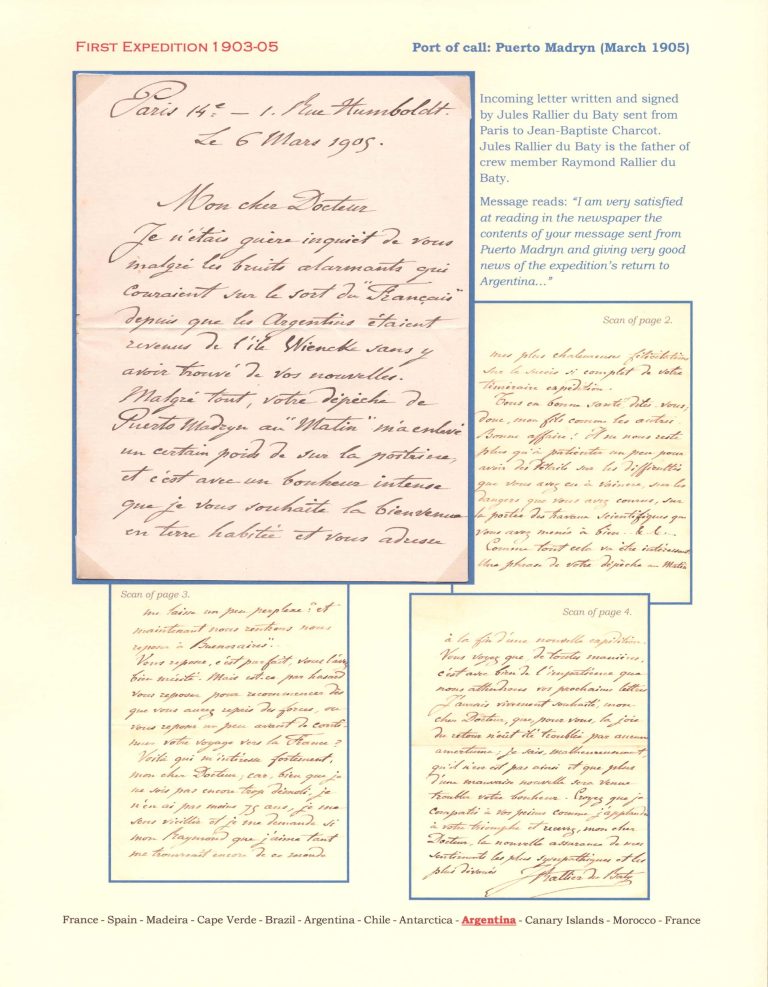 FIRST EXPEDITION 1903-05
Port of call: Puerto Madryn (March 1905)
Paris 14e — 1. Rue Humboldt.
Le 6 Mars 1905.
Mon cher Docteur
Je n'étais guère inquiet de vous
malgré les bruits alarmants qui
couraient sur le sort du "Français"
depuis que les Argentins étaient
revenus de l'île Wiencke sans y
avoir trouvé de vos nouvelles.
Malgré tout, votre dépêche de
Puerto Madryn au "Matin" m'a enlevé
un certain poids de sur la poitrine,
et c'est avec un bonheur intense
que je vous souhaite la bienvenue
en terre habitée et vous adresse
Incoming letter written and signed
by Jules Rallier du Baty sent from
Paris to Jean-Baptiste Charcot.
Jules Rallier du Baty is the father of
crew member Raymond Rallier du
Baty.
Message reads: “I am very satisfied
at reading in the newspaper the
contents of your message sent from
Puerto Madryn and giving very good
news of the expedition’s return to
Argentina…”
Scan of page 2.
mes plus chaleureuses félicitations
sur le succès si complet de votre
téméraire expédition.
Tous en bonne santé, dites-vous,
donc, mon fils comme les autres.
Bonne affaire! Il ne nous reste
plus qu'à patienter un peu pour
avoir des détails sur les difficultés
que vous avez eu à vaincre, sur les
dangers que vous avez courus, sur
la portée des travaux scientifiques que
vous avez menés à bien. &. &..
Comme tout cela va être intéressant
Une phrase de votre dépêche au Matin
Scan of page 3.
me laisse un peu perplexe: "et
maintenant nous rentrons nous
reposer à Buenosaires".
Vous reposer, c'est parfait, vous l'avez
bien mérité. Mais est-ce par hasard
vous reposer pour recommencer dès
que vous aurez repris des forces, ou
vous reposer un peu avant de conti-
nuer votre voyage vers la France?
Voilà qui m'intéresse fortement,
mon cher Docteur, car, bien que je
ne sois pas encore trop démoli, je
n'en ai pas moins 75 ans, je me
sens vieillir et je me demande si
mon Raymond que j'aime tant
me trouverait encore de ce monde
Scan of page 4.
à la fin d'une nouvelle expédition.
Vous voyez que, de toutes manières,
c'est avec bien de l'impatience que
nous attendrons vos prochaines lettres
J'aurais vivement souhaité, mon
cher Docteur, que, pour vous, la joie
du retour n'eût été troublée par aucune
amertume; je sais, malheureusement,
qu'il n'en est pas ainsi et que plus
d'une mauvaise nouvelle sera venue
troubler votre bonheur. Croyez que je
compatis à vos peines comme j'applaudis
à votre triomphe et recevez, mon cher
Docteur, la nouvelle assurance de mes
sentiments les plus sympathiques et les
plus dévoués
JRallier du Baty
France - Spain - Madeira - Cape Verde - Brazil - Argentina - Chile - Antarctica - Argentina - Canary Islands - Morocco - France